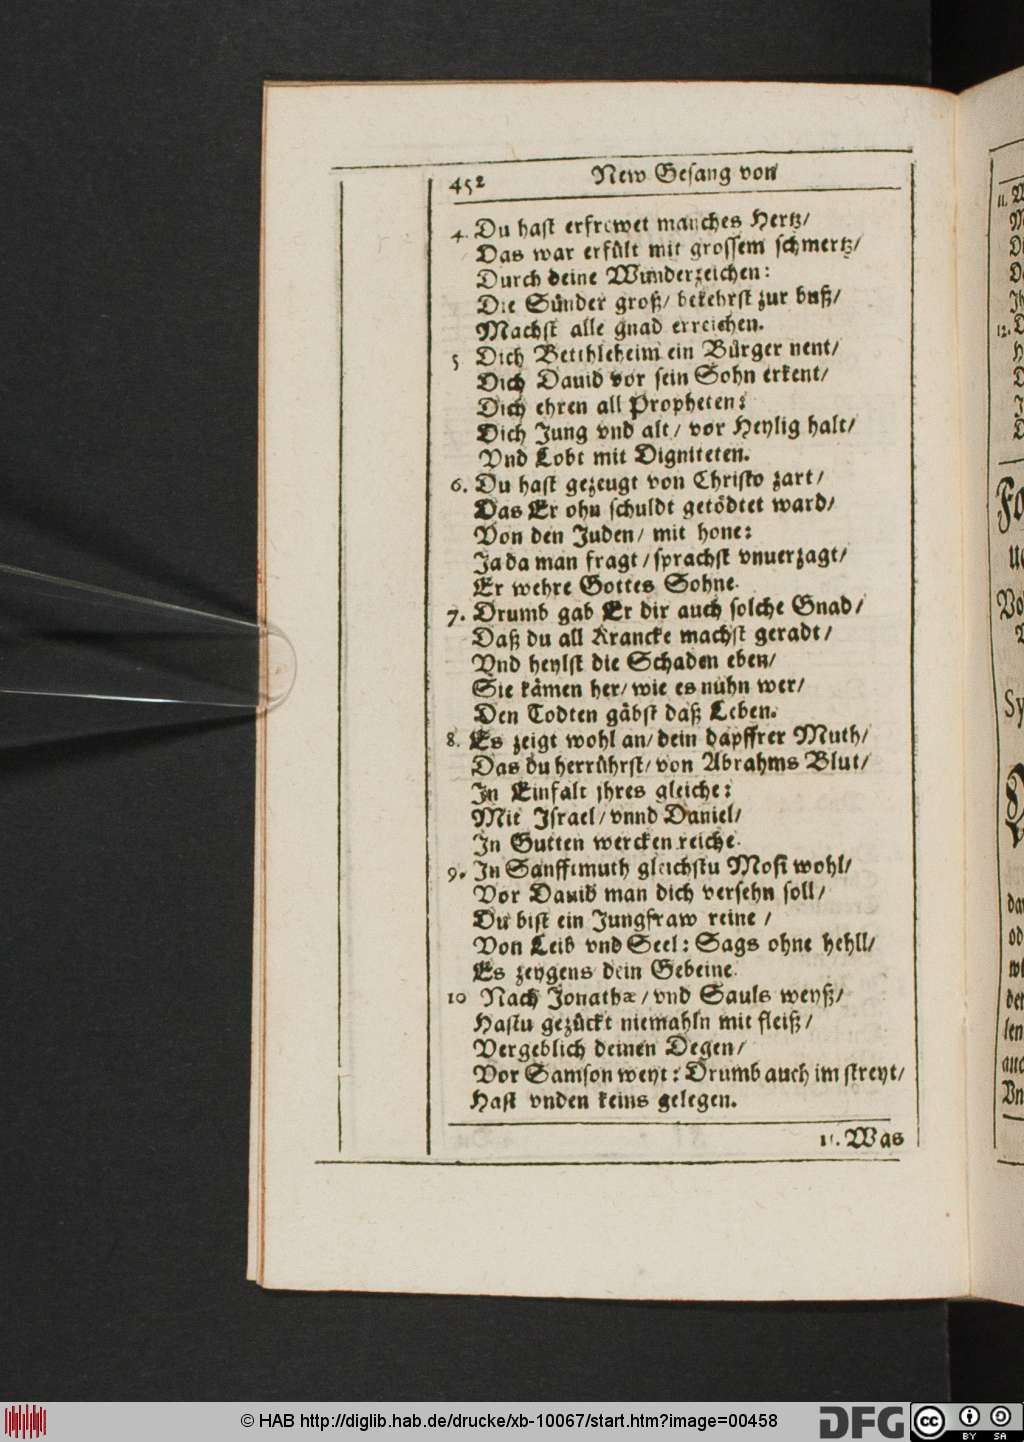 452 New Gesang von
4. Du hast erfrewet manches Hertz/
Das war erfült mit grossem schmertz/
Durch deine Wunderzeichen:
Die Sünder groß/ bekehrst zur buß/
Machst alle gnad erreichen.
5 Dich Betthleheim ein Bürger nent/
Dich Dauid vor sein Sohn erkent/
Dich ehren all Propheten:
Dich Jung vnd alt/ vor Heylig halt/
Vnd Lobt mit Digniteten.
6. Du hast gezeugt von Christo zart/
Das Er ohn schuldt getödtet ward/
Von den Juden/ mit hone:
Ja da man fragt/ sprachst vnuerzagt/
Er wehre Gottes Sohne.
7. Drumb gab Er dir auch solche Gnad/
Daß du all Krancke machst geradt/
Vnd heylst die Schaden eben/
Sie kämen her/ wie es nuhn wer/
Den Todten gäbst daß Leben.
8. Es zeigt wohl an/ dein dapffrer Muth/
Das du herrührst/ von Abrahms Blut/
In Einfalt jhres gleiche:
Mit Israel/ vnnd Daniel/
In Gutten wercken reiche.
9. In Sanfftmuth gleichstu Mosi wohl/
Vor Dauid man dich versehn soll/
Du bist ein Jungfraw reine/
Von Leib vnd Seel: Sags ohne hehll/
Es zeygens dein Gebeine.
10 Nach Jonathæ/ vnd Sauls weyß/
Hastu gezückt niemahln mit fleiß/
Vergeblich deinen Degen/
Vor Samson weyt: Drumb auch im streyt/
Hast vnden keins gelegen.
11. Was
© HAB http://diglib.hab.de/drucke/xb-10067/start.htm?image=00458
DFG
cc BY SA